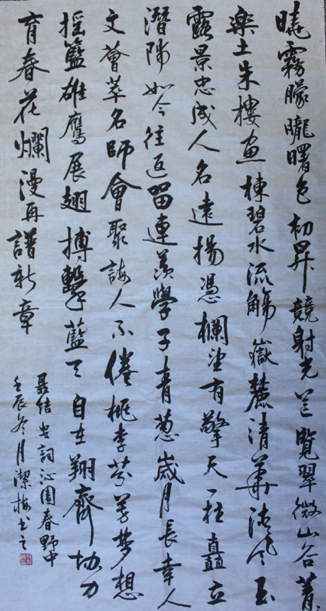 曉霧朦朧曙色初昇競射光芒覽翠微山谷菁
樂土朱樓画棟碧水流觴嶽麓清華清风玉
露景忠成人名遠揚憑欄望有擎天一柱矗立
如今往返留連羨學子青蔥歲月長幸人
文薈萃名師會聚誨人不倦桃李芬芳夢想
搖籃雄鷹展翅搏擊藍天自在翔齊協力
育春花爛漫再譜新章
聶结安詞沁園春野中
壬辰冬月潔梅书之